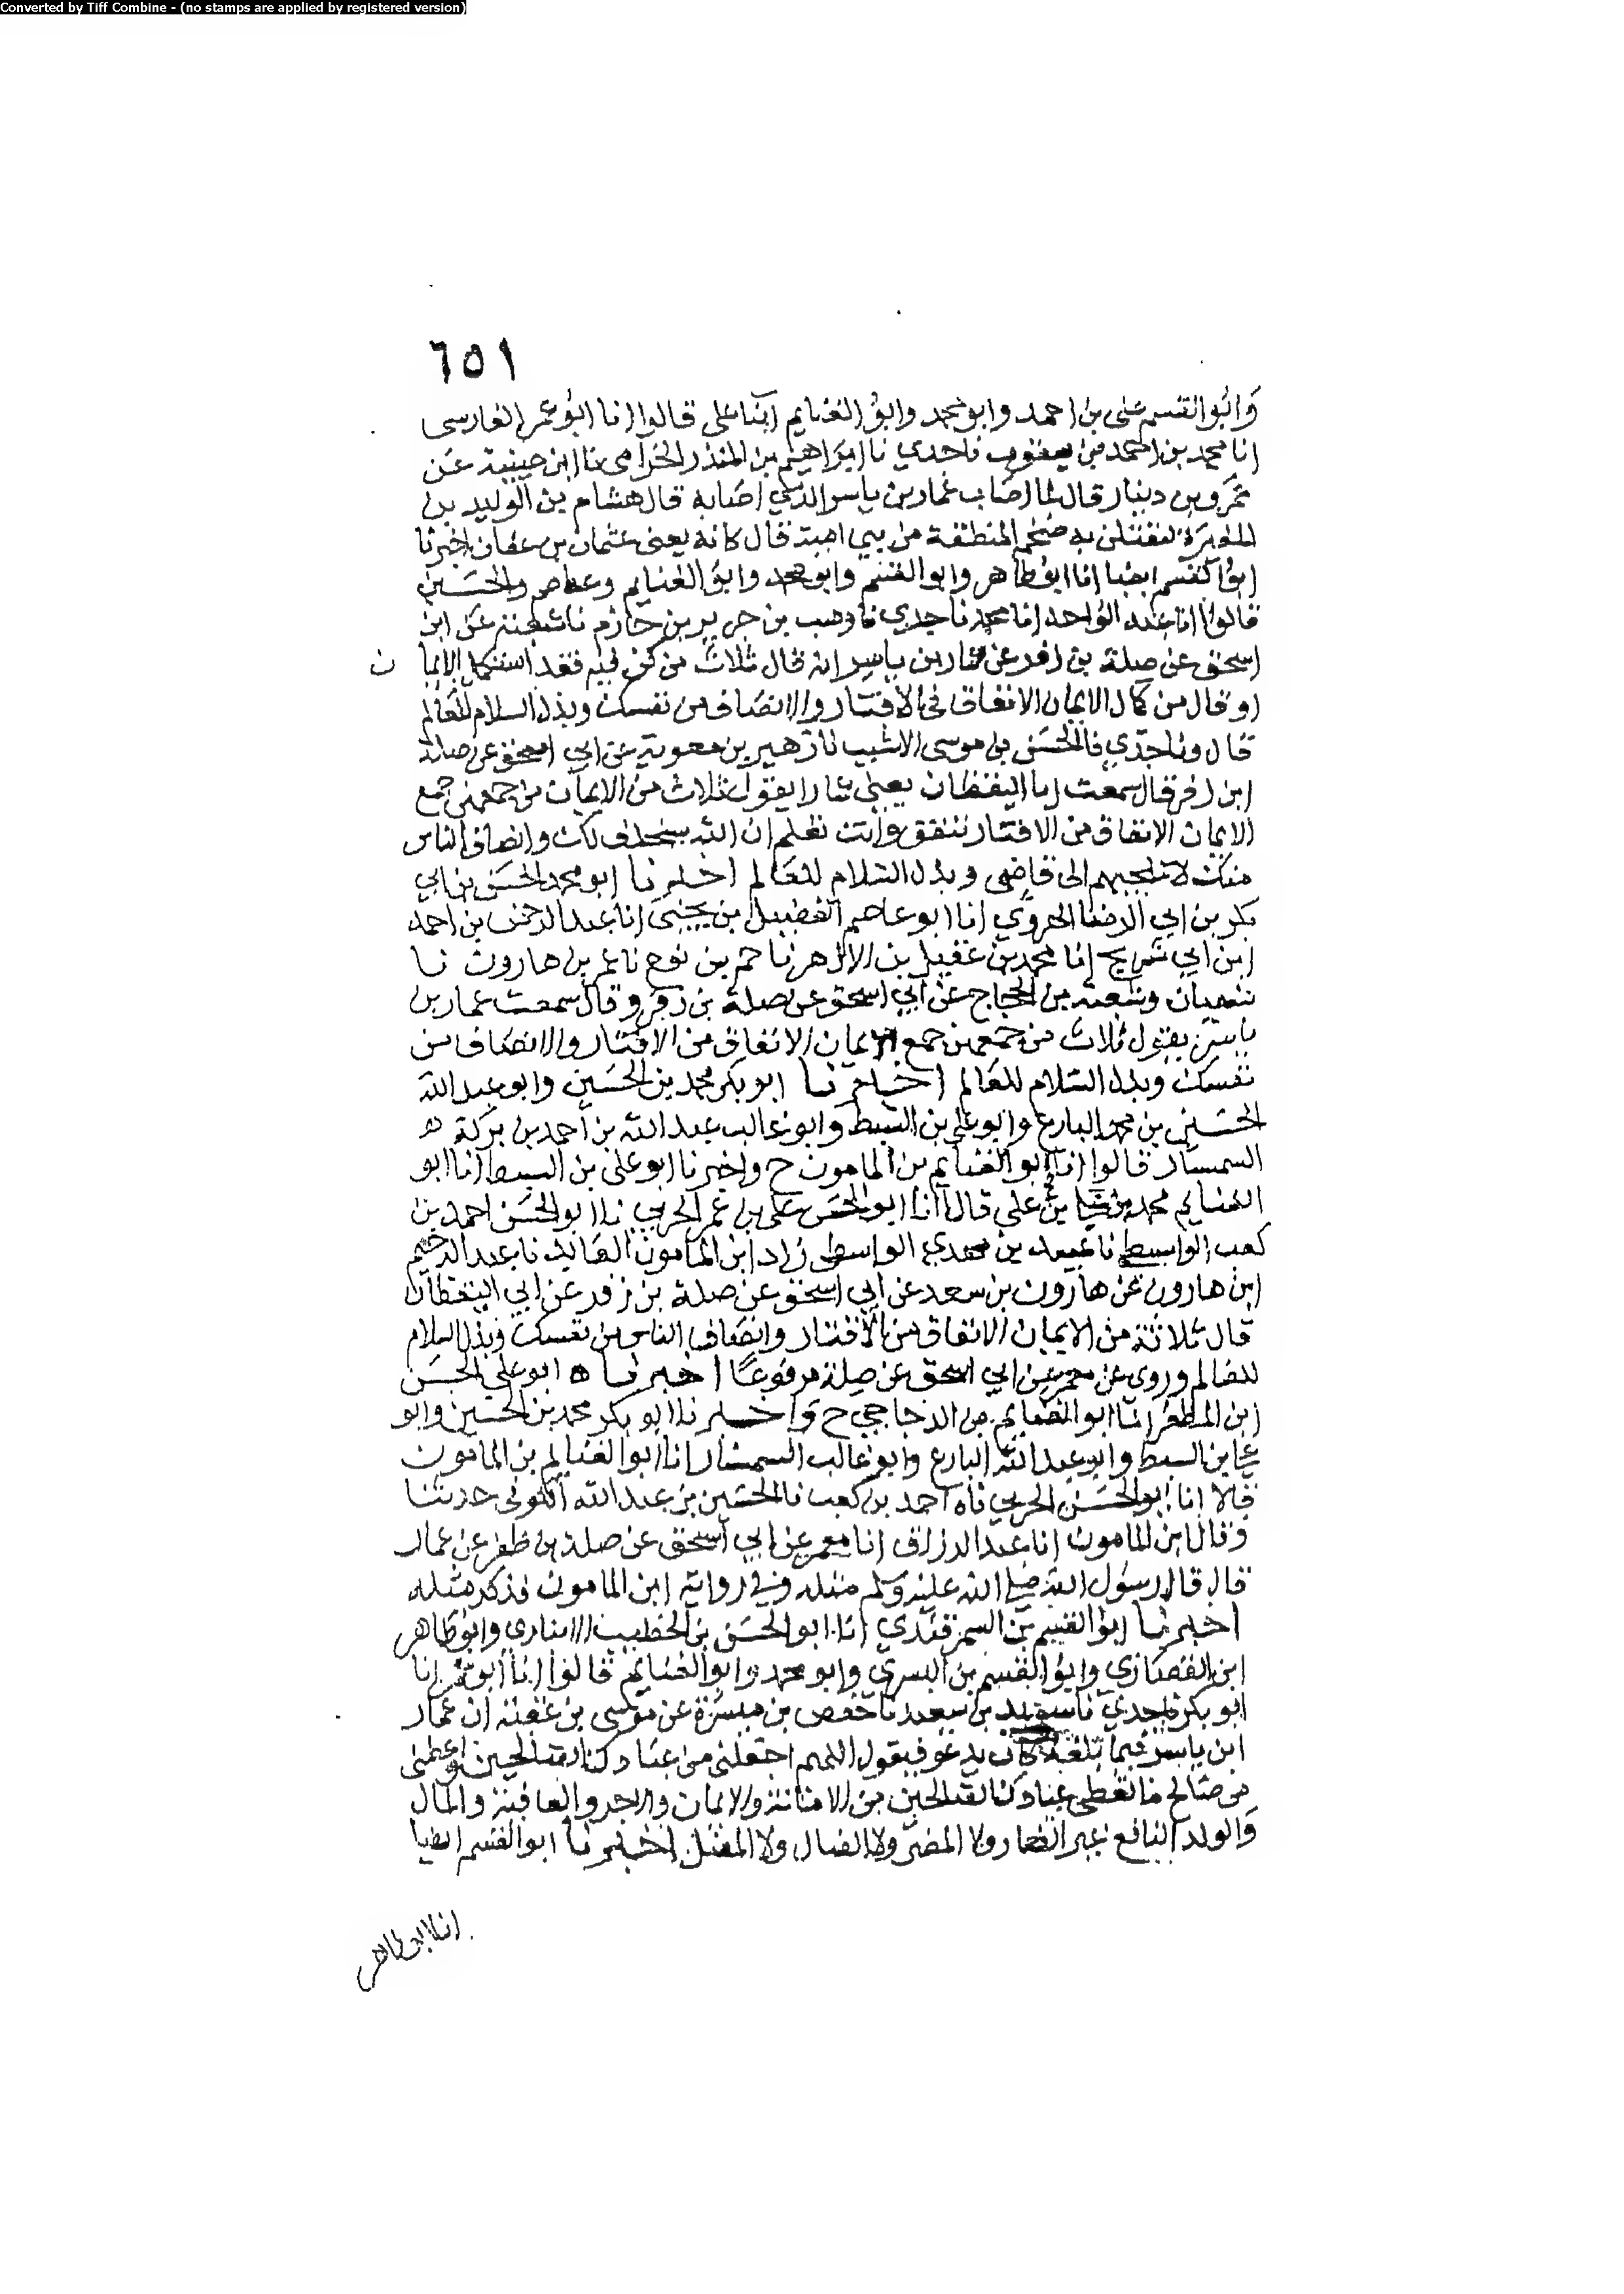 Converted by Tiff Combine - (no stamps are applied by registered version)
٦٥١
وابو القسم على بن احمد وابو محمد وابو الغنايم ابنا على قالوا انا ابو عمر الفارسى
انا محمد بن احمد بن يعقوب نا جدي نا ابراهيم بن المنذر الحزامى نا ابن عيينة عن
عمرو بن دينار قال لما اصاب عمار بن ياسر الذي اصابه قال هشام بن الوليد بن
المغيرة لنقتلن به ضخم المنطقة من بني امية قال كانه يعنى عثمان بن عفان اخبرنا
ابو القسم ايضا انا ابو طاهر وابو القسم وابو محمد وابو الغنايم وعاصم والحسين
قالوا انا عبد الواحد انا محمد نا جدي نا وهب بن جرير بن حازم نا شعبة عن ابن
اسحق عن صلة بن زفر عن عمار بن ياسر انه قال ثلاث من كن فيه فقد استكمل الايما ن
او قال من كمال الايمان الانفاق في الاقتار والانصاف من نفسك وبذل السلام للعالم
قال ونا جدي نا الحسن بن موسى الاشيب نا زهير بن معوية عن ابي اسحق عن صلة
ابن زفر قال سمعت ابا اليقظان يعنى عمارا يقول ثلاث من الايمان من جمعهن جمع
الايمان الانفاق من الاقتار تنفق وانت تعلم ان الله سيخلف لك وانصاف الناس
منك لا تلجيهم الى قاضى وبذل السلام للعالم اخبرنا ابو محمد الحسن بن ابي
بكر بن ابي الرضا الهروي انا ابو عاصم الفضيل بن يحيى انا عبد الرحمن بن احمد
ابن ابي شريح انا محمد بن عقيل بن الازهر نا حم بن نوح نا عمر بن هارون نا
سفيان وشعبة بن الحجاج عن ابي اسحق عن صلة بن زفر وقال سمعت عمار بن
ياسر يقول ثلاث من جمعهن جمع الايمان الانفاق من الاقتار والانصاف من
نفسك وبذل السلام للعالم اخبرنا ابو بكر محمد بن الحسين وابو عبد الله
الحسين بن محمد البارع وابو على بن السبط وابو غالب عبد الله بن احمد بن بركة
السمسار قالوا انا ابو الغنايم بن المامون ح واخبرنا ابو على بن السبط انا ابو
الغنايم محمد بن على بن على قالا انا ابو الحسن على بن عمر الحربي نا ابو الحسن احمد بن
كعب الواسطى نا بن الواسطى زاد ابن المامون نا عبد الرحيم
ابن هارون عن هارون بن سعد عن ابي اسحق عن صلة بن زفر عن ابي اليقظان
قال ثلاثة من الايمان الانفاق من الاقتار وانصاف الناس من نفسك وبذل السلام
للعالم وروى عن معمر عن ابي اسحق عن صلة مرفوعا اخبرناه ابو على الحسن
ابن المظفر انا ابو الغنايم بن الدجاجي ح واخبرنا ابو بكر محمد بن الحسين وابو
على بن السبط وابو عبد الله البارع وابو غالب السمسار انا ابو الغنايم بن المامون
قالا انا ابو الحسن الحربي ناه احمد بن كعب نا الحسين بن عبد الله الكوفى حدثنا
وقال ابن المامون انا عبد الرزاق انا معمر عن ابي اسحق عن صلة بن ظفر عن عمار
قال قال رسول الله صلى الله عليه وسلم مثله وفي رواية ابن المامون فذكر مثله
اخبرنا ابو القسم بن السمرقندي انا ابو الحسن بن الخطيب الانبارى وابو طاهر
ابن القصاري وابو القسم بن البسري وابو محمد وابو الغنايم قالوا انا ابو عمر انا
ابو بكر نا جدي نا سويد بن سعيد نا حفص بن ميسرة عن موسى بن عقبة ان عمار
ابن ياسر فيما بلغه كان يدعو فيقول اللهم اجعلنى من عبادك الصالحين واعطنى
من صالح ما تعطى عبادك الصالحين من الامانة والايمان والاجر والعافية والمال
والولد النافع غير الضار ولا المضر ولا الضال ولا المضل اخبرنا ابو القسم ايضا
انا ابو طاهر